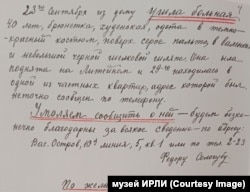 25го Сентября из дому ушла больная,
40 лет, брюнетка, худенькая, одета в темно-
красный костюм, поверх серое пальто, в валенках
и небольшой черной шелковой шляпе. Она была
поднята на Литейном и 29го находилась в
одной из частных квартир, адрес которой был
неточно сообщен по телефону.
Умоляем сообщить о ней — будем беско-
нечно благодарны за всякое сведение — по адресу
Вас. Остров, 10я линия, 5, кв. 1 или по тел. 2-23
Федору Сологубу.
музей ИРЛИ (Courtesy Image)